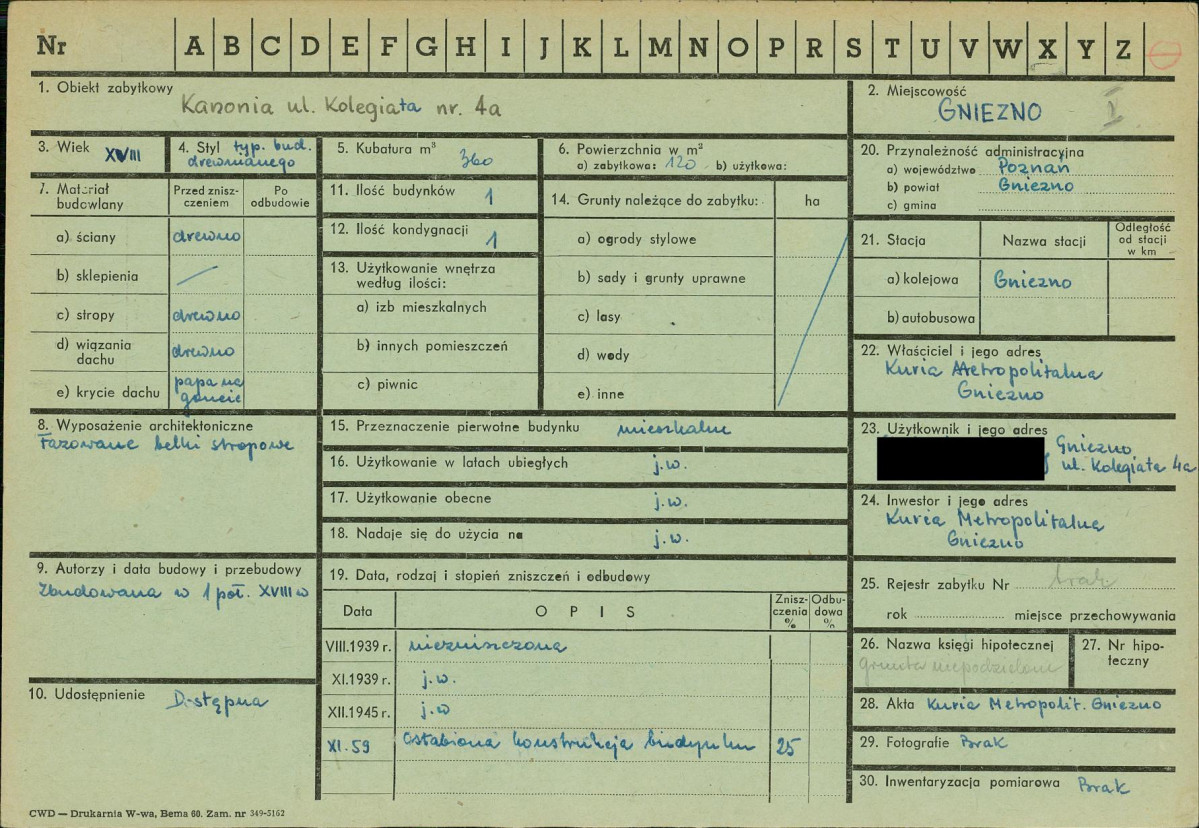 Nr A B C D E F G H I J K L M N O P R S T U V W X Y Z
1. Obiekt zabytkowy
Kanonia ul. Kolegiata nr. 4a
2. Miejscowość
GNIEZNO I
3. Wiek XVIII
4. Styl typ. bud.
drewnianego
5. Kubatura m³ 360
6. Powierzchnia w m²
a) zabytkowa: 120 b) użytkowa:
7. Materiał
budowlany
Przed znisz-
czeniem
Po
odbudowie
a) ściany drewno
b) sklepienia
c) stropy drewno
d) wiązania
dachu drewno
e) krycie dachu papa na
goncie
11. Ilość budynków 1
12. Ilość kondygnacji 1
13. Użytkowanie wnętrza
według ilości:
a) izb mieszkalnych
b) innych pomieszczeń
c) piwnic
14. Grunty należące do zabytku: ha
a) ogrody stylowe
b) sady i grunty uprawne
c) lasy
d) wody
e) inne
20. Przynależność administracyjna
a) województwo Poznań
b) powiat Gniezno
c) gmina
21. Stacja Nazwa stacji
Odległość
od stacji
w km
a) kolejowa Gniezno
b) autobusowa
22. Właściciel i jego adres
Kuria Metropolitalna
Gniezno
8. Wyposażenie architektoniczne
Fazowane belki stropowe
15. Przeznaczenie pierwotne budynku mieszkalne
16. Użytkowanie w latach ubiegłych j.w.
17. Użytkowanie obecne j.w.
18. Nadaje się do użycia na j.w.
23. Użytkownik i jego adres
Gniezno
ul. Kolegiata 4a
24. Inwestor i jego adres
Kuria Metropolitalna
Gniezno
9. Autorzy i data budowy i przebudowy
Zbudowana w 1 poł. XVIII w
19. Data, rodzaj i stopień zniszczeń i odbudowy
Data O P I S
Znisz-
czenia
%
Odbu-
dowa
%
VIII.1939 r. niezniszczona
XI.1939 r. j.w.
XII.1945 r. j.w
XI.59 Osłabiona konstrukcja budynku 25
10. Udostępnienie Dostępna
25. Rejestr zabytku Nr brak
rok miejsce przechowywania
26. Nazwa księgi hipotecznej
grunta niepodzielone
27. Nr hipo-
teczny
28. Akta Kuria Metropolit. Gniezno
29. Fotografie Brak
30. Inwentaryzacja pomiarowa Brak
CWD — Drukarnia W-wa, Bema 60. Zam. nr 349-5162